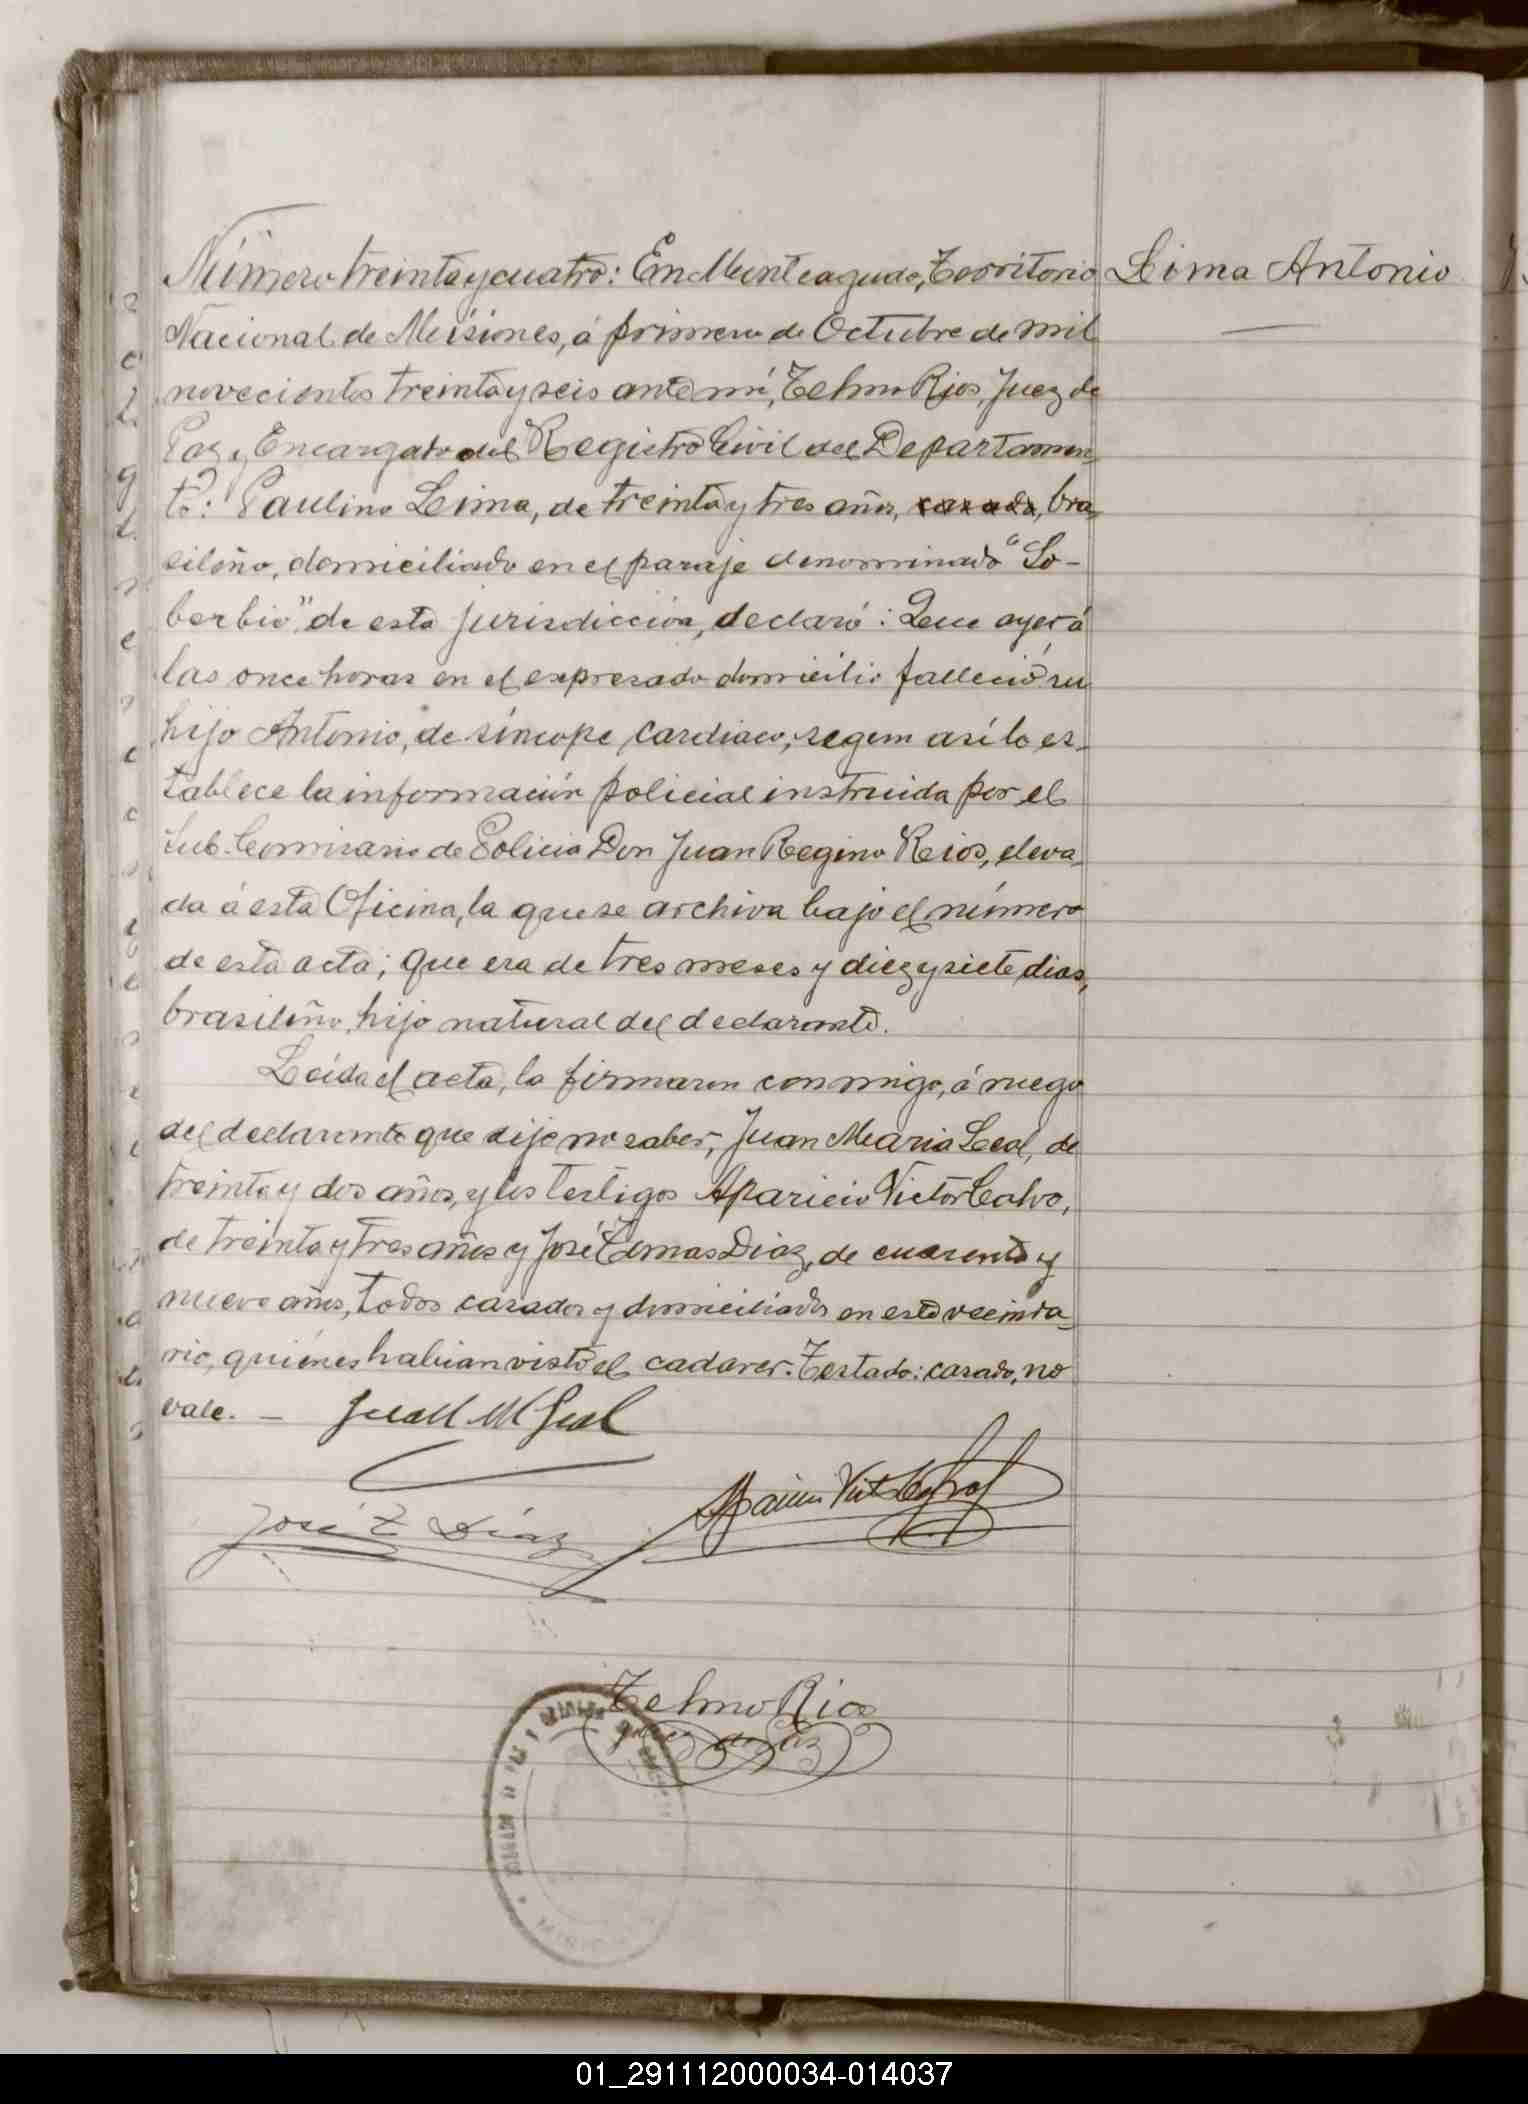 Número treinta y cuatro: En Monteagudo, Territorio
Lima Antonio
Nacional de Misiones, á primero de Octubre de mil
novecientos treinta y seis ante mi, Telmo Rios, Juez de
Paz y Encargado del Registro Civil del Departamen-
to: Paulino Lima, de treinta y tres años, casado, bra-
sileño, domiciliado en el paraje denominado "So-
berbio", de esta jurisdicción, declaró: Que ayer á
las once horas en el expresado domicilio falleció su
hijo Antonio, de síncope cardiaco, segun así lo es-
tablece la información policial instruida por el
Sub-Comisario de Policia Don Juan Regino Rios, eleva-
da á esta Oficina, la que se archiva bajo el número
de esta acta; que era de tres meses y diez y siete dias,
brasileño, hijo natural del declarante.
Leída el acta, la firmaron conmigo, á ruego
del declarante que dijo no saber, Juan Maria Leal, de
treinta y dos años, y los testigos Aparicio Victor Calvo,
de treinta y tres años y José Tomas Diaz, de cuarenta y
nueve años, todos casados y domiciliados en este vecinda-
rio, quiénes habian visto el cadaver. Testado: casado, no
vale. — Juan M Leal
José T Díaz
Telmo Rios
Juez de Paz
JUZGADO DE PAZ
01_291112000034-014037